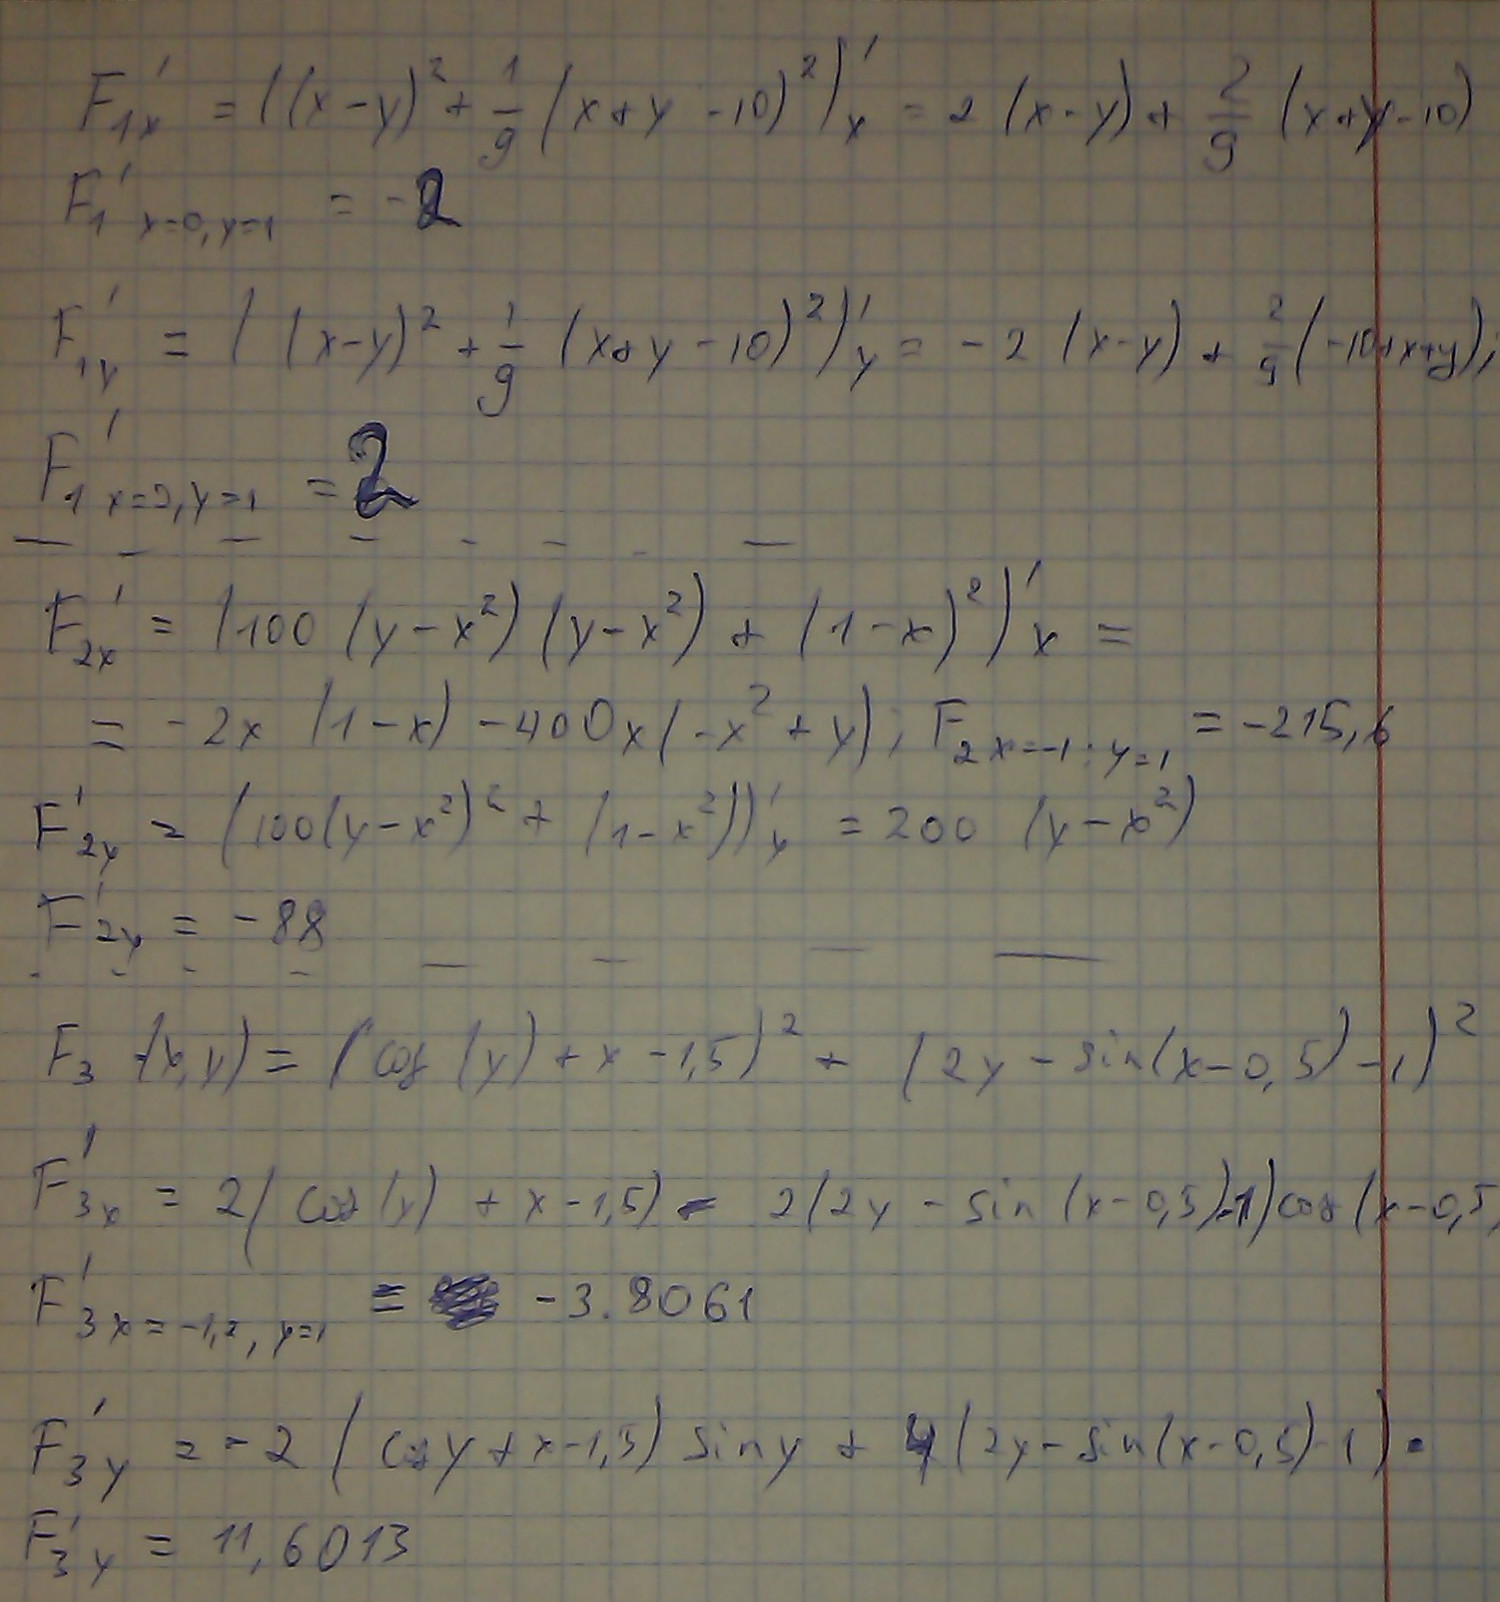 F'₁ₓ = ((x-y)² + 1/9 (x+y-10)²)'ₓ = 2 (x-y) + 2/9 (x+y-10)
F₁' x=0, y=1 = -2
F'₁y = ((x-y)² + 1/9 (x+y-10)²)'y = -2 (x-y) + 2/9 (-10+x+y);
F₁' x=0, y=1 = 2
F₂ₓ' = (100 (y-x²) (y-x²) + (1-x)²)'ₓ =
= -2x (1-x) - 400x (-x² + y); F₂ x=-1; y=1 = -215,6
F'₂y = (100(y-x²)² + (1-x²))'y = 200 (y-x²)
F'₂y = -88
F₃ (x,y) = (cos(y) + x - 1,5)² + (2y - sin(x-0,5) - 1)²
F'₃ₓ = 2(cos(y) + x - 1,5) - 2(2y - sin(x-0,5)-1) cos(x-0,5
F'₃ x=-1,2, y=1 = -3.8061
F'₃y = -2 (cos y + x - 1,5) sin y + 4 (2y - sin(x-0,5) - 1).
F'₃y = 11,6013